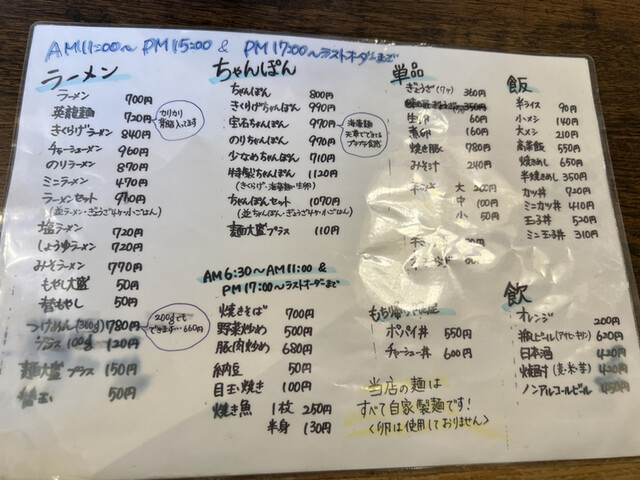 AM11:00～PM15:00 & PM17:00～ラストオーダーまで
ラーメン
ラーメン 700円
英龍麺 720円
カリカリ
背脂入ってます
きくらげラーメン 840円
チャーシューメン 960円
のりラーメン 870円
ミニラーメン 470円
ラーメンセット
(並ラーメン・ぎょうざ4ケ・小ごはん)
塩ラーメン 720円
しょうゆラーメン 720円
みそラーメン 770円
もやし大盛 50円
替もやし 50円
つけめん(300g) 780円
200gでも
できます…660円
プラス100g 120円
麺大盛プラス 150円
替玉 50円
ちゃんぽん
ちゃんぽん 800円
きくらげちゃんぽん 990円
宝石ちゃんぽん 970円
海藻麺
天草でできてる
プチプチ食感
のりちゃんぽん 970円
少なめちゃんぽん 710円
特製ちゃんぽん 1120円
(きくらげ・海藻麺・生卵)
ちゃんぽんセット 1070円
(並ちゃんぽん・ぎょうざ4ケ・小ごはん)
麺大盛プラス 110円
AM6:30～AM11:00 &
PM17:00～ラストオーダーまで
焼きそば 700円
野菜炒め 500円
豚肉炒め 680円
納豆 50円
目玉焼き 100円
焼き魚 1枚 250円
半身 130円
単品
ぎょうざ(7ケ) 360円
生卵 60円
煮卵 160円
焼き豚 780円
みそ汁 240円
大 200円
中 100円
小 50円
ポパイ丼 550円
チャーシュー丼 600円
当店の麺は
すべて自家製麺です!
<卵は使用しておりません>
飯
半ライス 90円
小メシ 140円
大メシ 210円
高菜飯 550円
焼きめし 650円
半焼きめし 350円
カツ丼 720円
ミニカツ丼 410円
玉子丼 520円
ミニ玉子丼 310円
飲
オレンジ 200円
瓶ビール(アサヒ・キリン) 620円
日本酒 420円
焼酎(麦・米・芋) 420円
ノンアルコールビール 450円